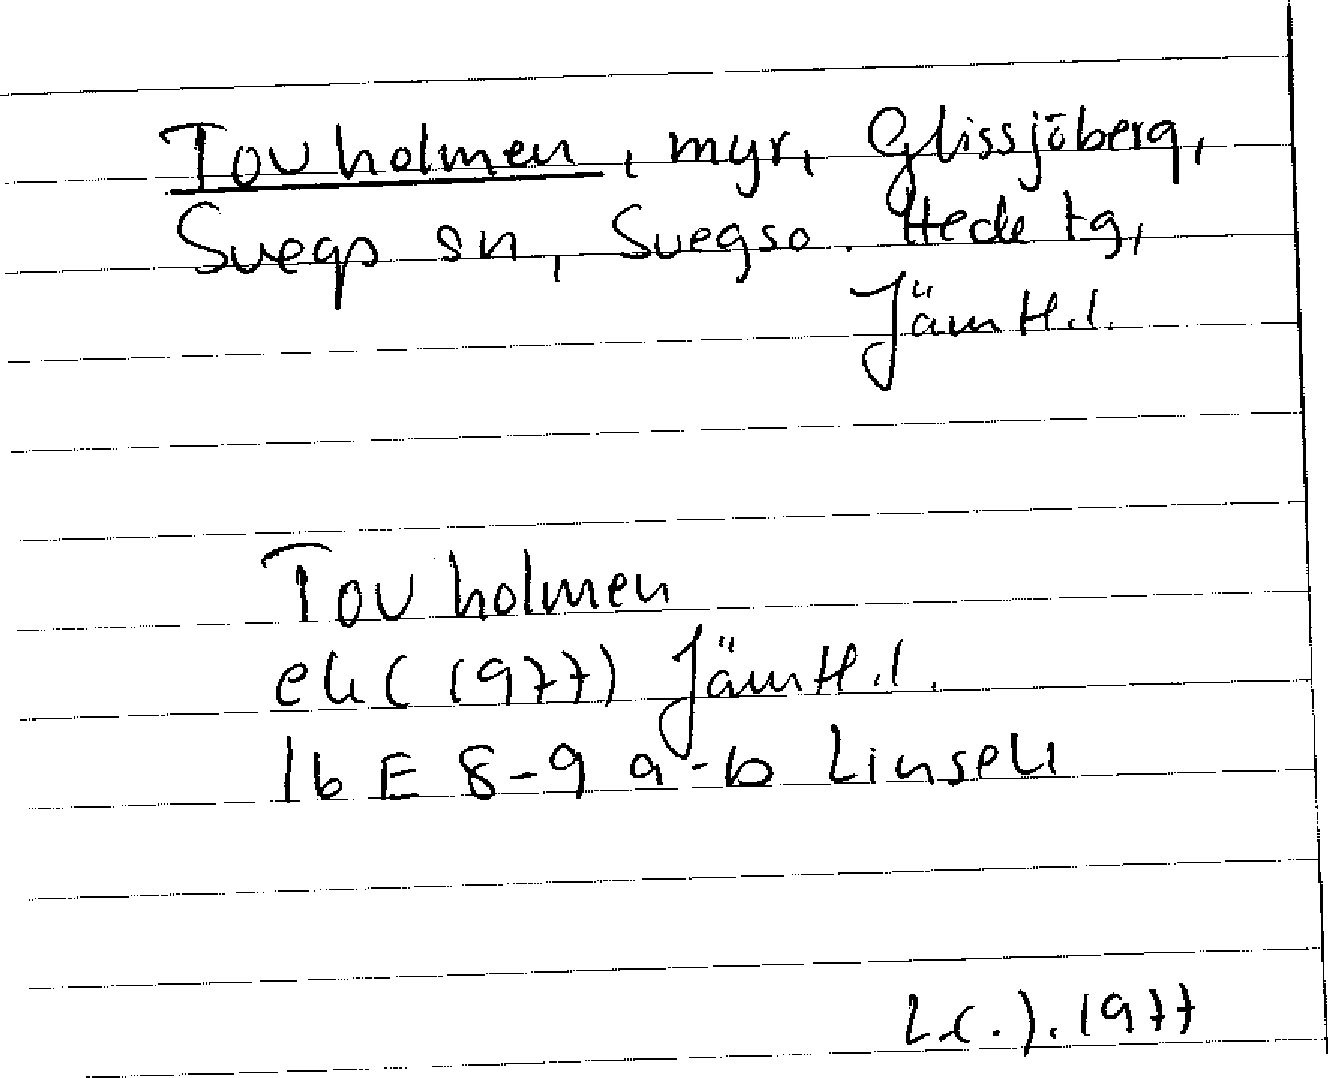 Tovholmen, myr, Glissjöberg,
Svegs sn, Svegs o. Hede tg,
Jämtl. l.
Tovholmen
ek (1977) Jämtl. l.
16 E 8-9 a-b Linsell
1977